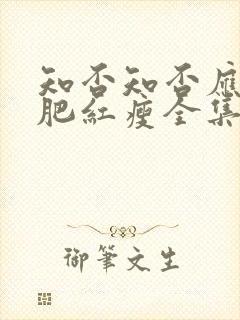 知否知否應
肥紅瘦全集
御筆文生